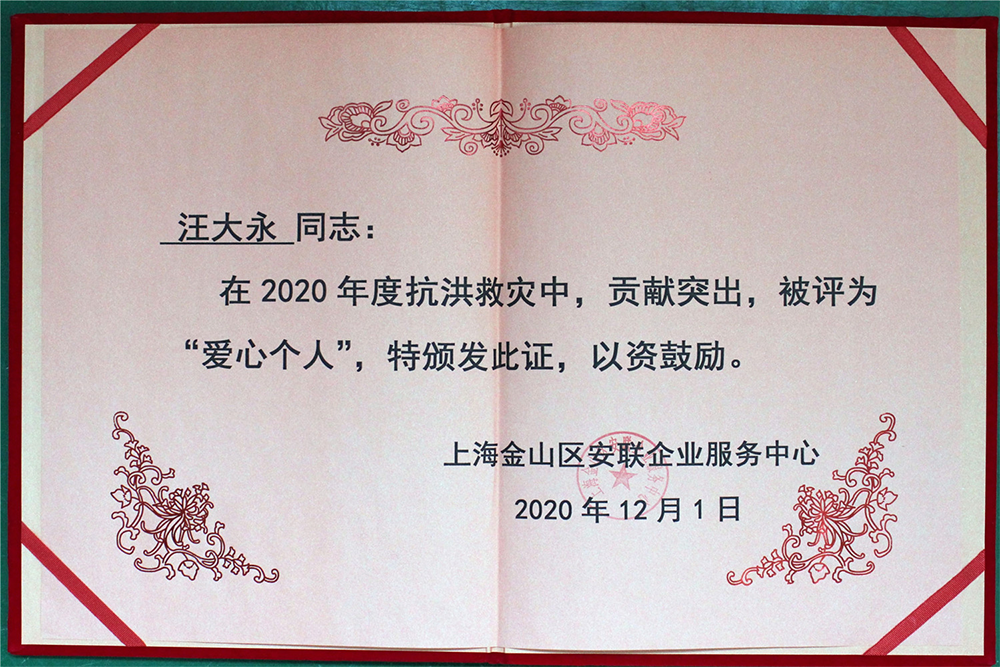 汪大永 同志：
在 2020 年度抗洪救灾中，贡献突出，被评为
“爱心个人”，特颁发此证，以资鼓励。
上海金山区安联企业服务中心
2020 年 12 月 1 日